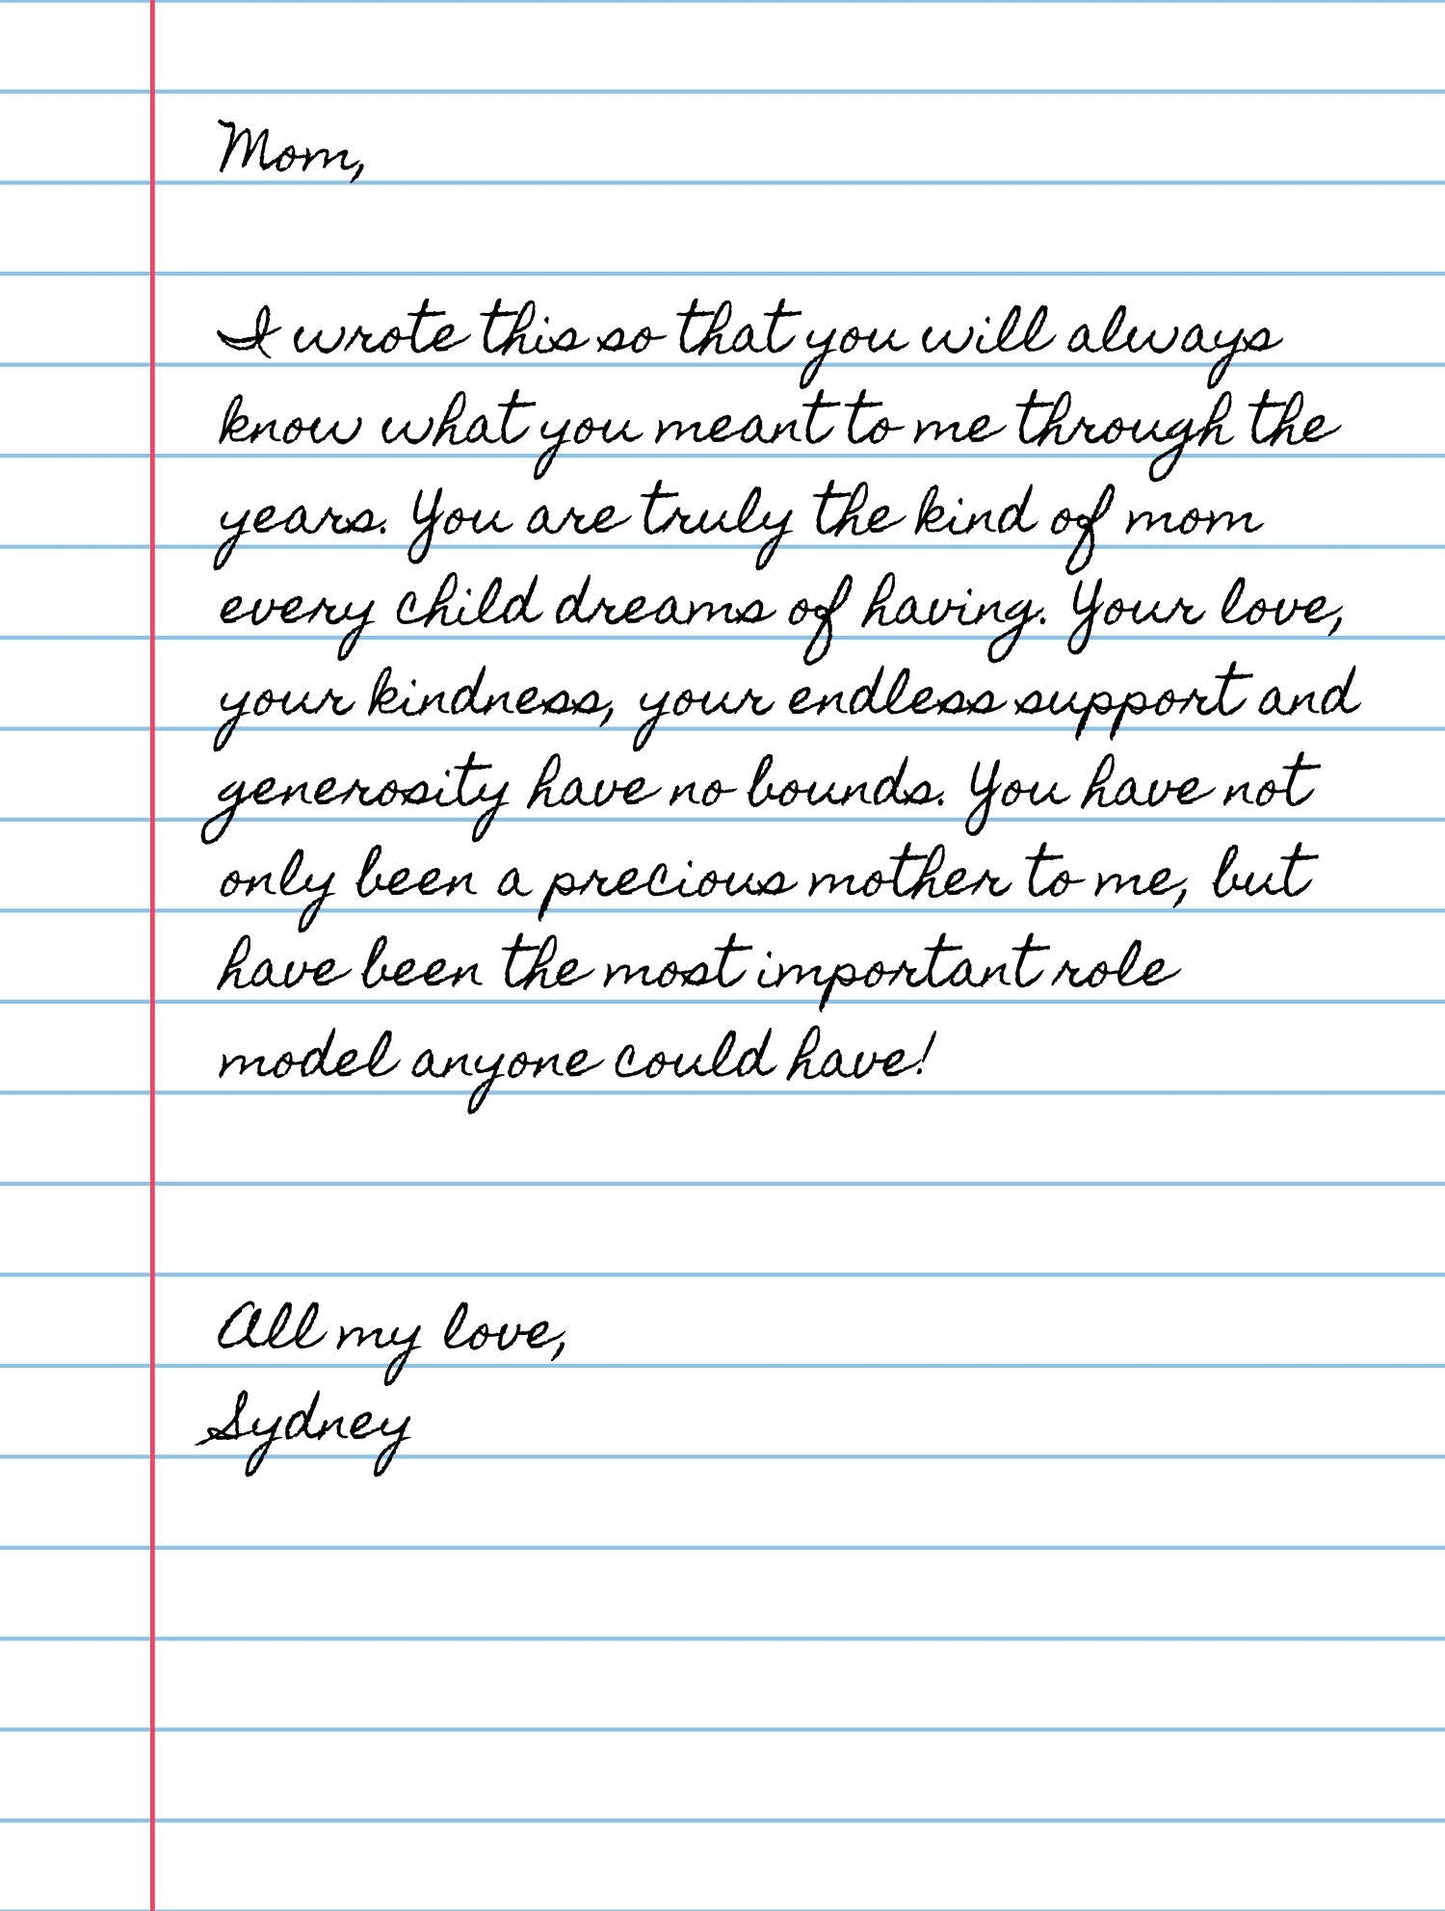 Mom,
I wrote this so that you will always
know what you meant to me through the
years. You are truly the kind of mom
every child dreams of having. Your love,
your kindness, your endless support and
generosity have no bounds. You have not
only been a precious mother to me, but
have been the most important role
model anyone could have!
All my love,
Sydney